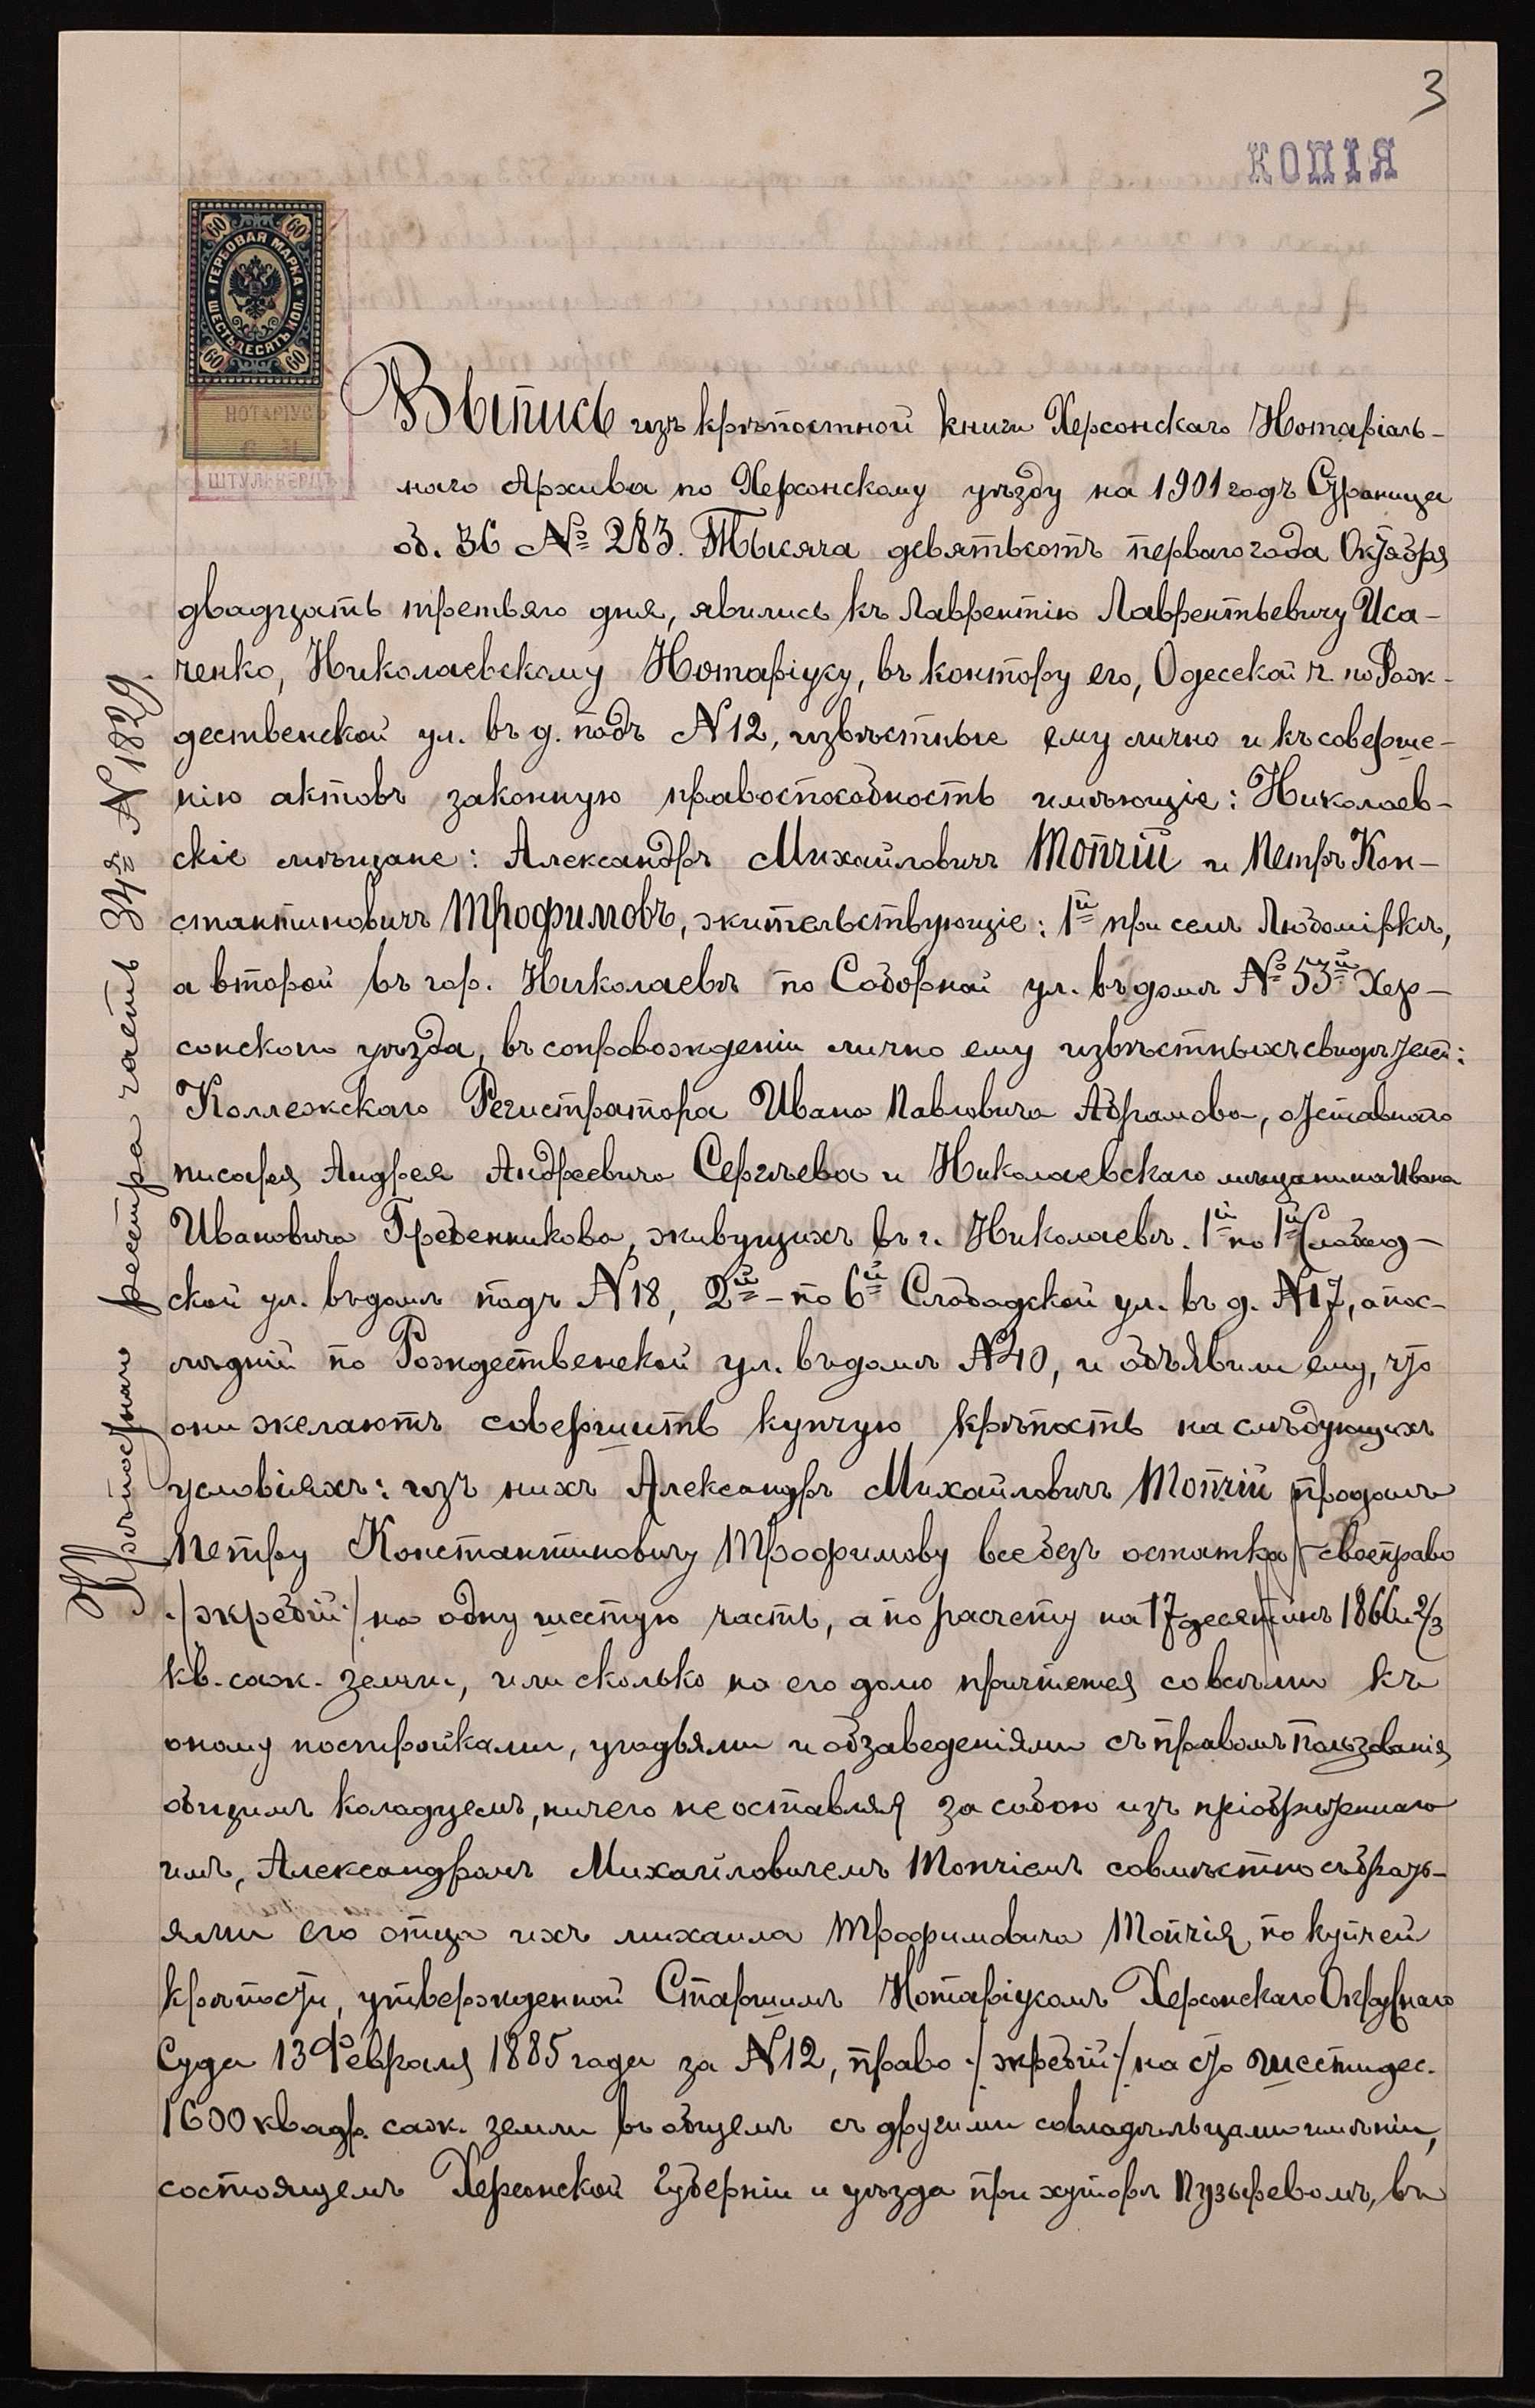 3
КОПІЯ
60 60
ГЕРБОВАЯ МАРКА
ШЕСТЬДЕСЯТЪ КОП.
60 60
НОТАРІУСЪ
ШТУЛЬБЕРГЪ
Выпись изъ крѣпостной книги Херсонскаго Нотаріаль-
наго Архива по Херсонскому уѣзду на 1901 годъ Страница
об. 36 № 283. Тысяча девятьсотъ перваго года Октября
двадцать третьяго дня, явились къ Лаврентію Лаврентьевичу Иса-
ченко, Николаевскому Нотаріусу, въ контору его, Одесской ч. по Рож-
дественской ул. въ д. подъ N 12, извѣстные ему лично и къ соверше-
нію актовъ законную правоспособность имѣющіе: Николаев-
скіе мѣщане: Александръ Михайловичъ Топчій и Петръ Кон-
стантиновичъ Трофимовъ, жительствующіе: 1й при селѣ Любомірке,
а второй въ гор. Николаевѣ по Соборной ул. въ домѣ № 53й Хер-
сонскаго уѣзда, въ сопровожденіи лично ему извѣстныхъ свидѣтел.:
Коллежскаго Регистратора Ивана Павловича Абрамова, отставного
писаря Андрея Андреевича Сергѣева и Николаевскаго мѣщанина Ивана
Ивановича Гребенникова, живущихъ въ г. Николаевѣ. 1й по 1й Слобод-
ской ул. въ домѣ подъ N 18, 2й - по 6й Слободской ул. въ д. N 17, а пос-
лѣдній по Рождественской ул. въ домѣ N 40, и объявили ему, что
они желаютъ совершить купчую крѣпость на слѣдующихъ
условіяхъ: изъ нихъ Александръ Михайловичъ Топчій продалъ
Петру Константиновичу Трофимову все безъ остатка свое право
/жребій/ на одну шестую часть, а по расчету на 17 десятинъ 1866 2/3
кв. саж. земли, или сколько на его долю причтется со всѣми къ
оному постройками, угодьями и обзаведеніями съ правомъ пользованія
общимъ колодцемъ, ничего не оставляя за собою изъ пріобрѣтеннаго
имъ, Александромъ Михайловичемъ Топчіемъ совмѣстно съ брать-
ями его отца ихъ Михаила Трофимовича Топчія, по купчей
крѣпости, утвержденной Старшимъ Нотаріусомъ Херсонскаго Окружнаго
Суда 13 Февраля 1885 года за N 12, право /жребій/ на сто шесть дес.
1600 квадр. саж. земли въ общемъ съ другими совладѣльцами имѣніи,
состоящемъ Херсонской губерніи и уѣзда при хуторѣ Пузыревомъ, въ
Крѣпостнаго реестра часть 34я N 1829.